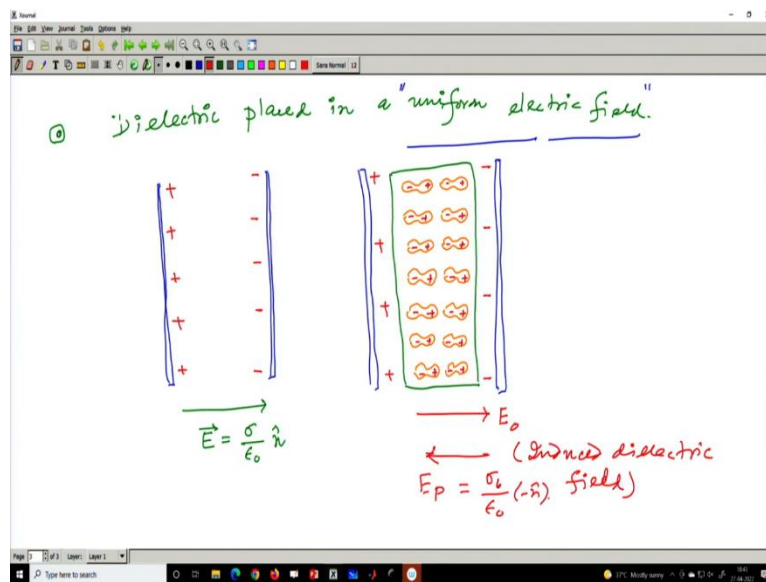 Xournal
File Edit View Journal Tools Options Help
Sans Normal 12
Dielectric placed in a "uniform electric field."
+ - + -
E = σ/ε₀ n̂
E₀
(Induced dielectric field)
E_P = σ_b/ε₀ (-n̂).
Page 3 of 3 Layer: Layer 1
Type here to search
37°C Mostly sunny
10:41
27-04-2022